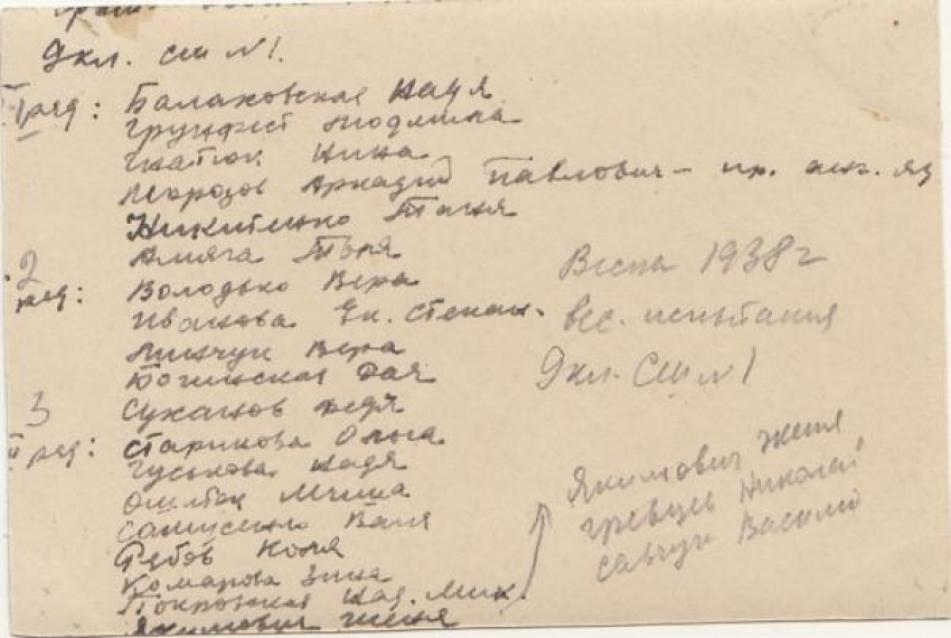 9 кл. СШ N 1.
I ряд: Балаковская Надя
Грунфест Людмила
Гнатюк Нина
Морозов Аркадий Павлович - пр. анг. яз
Никитенко Таня
Аляга Толя
2 ряд: Володько Вера
Иванова Ек. Степан.
Линчук Вера
Богинская Рая
3 Суханов Федя
ряд: Старикова Ольга
Гуськова Надя
Миша
Самусенко Ваня
Рябов Коля
Комарова Зина
Покровская Кад. Мих.
Якимович Женя
Весна 1938 г
вес. испытания
9 кл. СШ N 1
Якимович Женя
Гревцев Николай
Савчук Василий